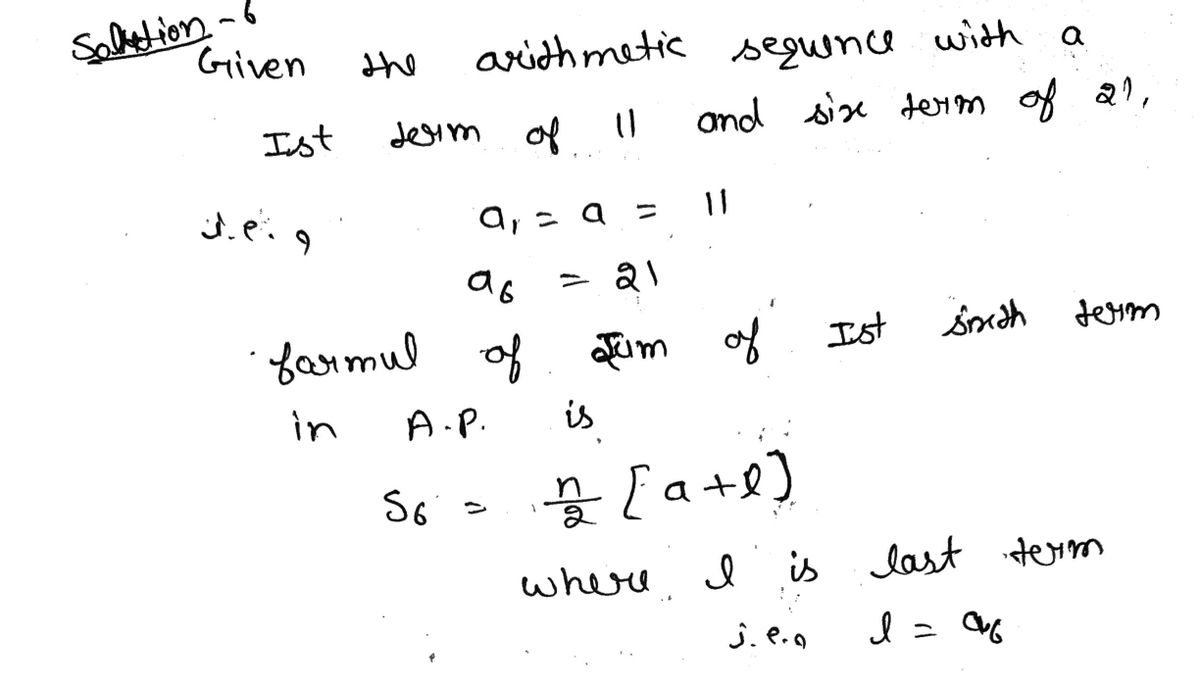 Solution - 6
Given the arithmetic sequence with a
Ist term of 11 and six term of 21,
i.e., a₁ = a = 11
a₆ = 21
formul of sum of Ist sixth term
in A.P. is
S₆ = n/2 [a + l]
where l is last term
i.e., l = a₆